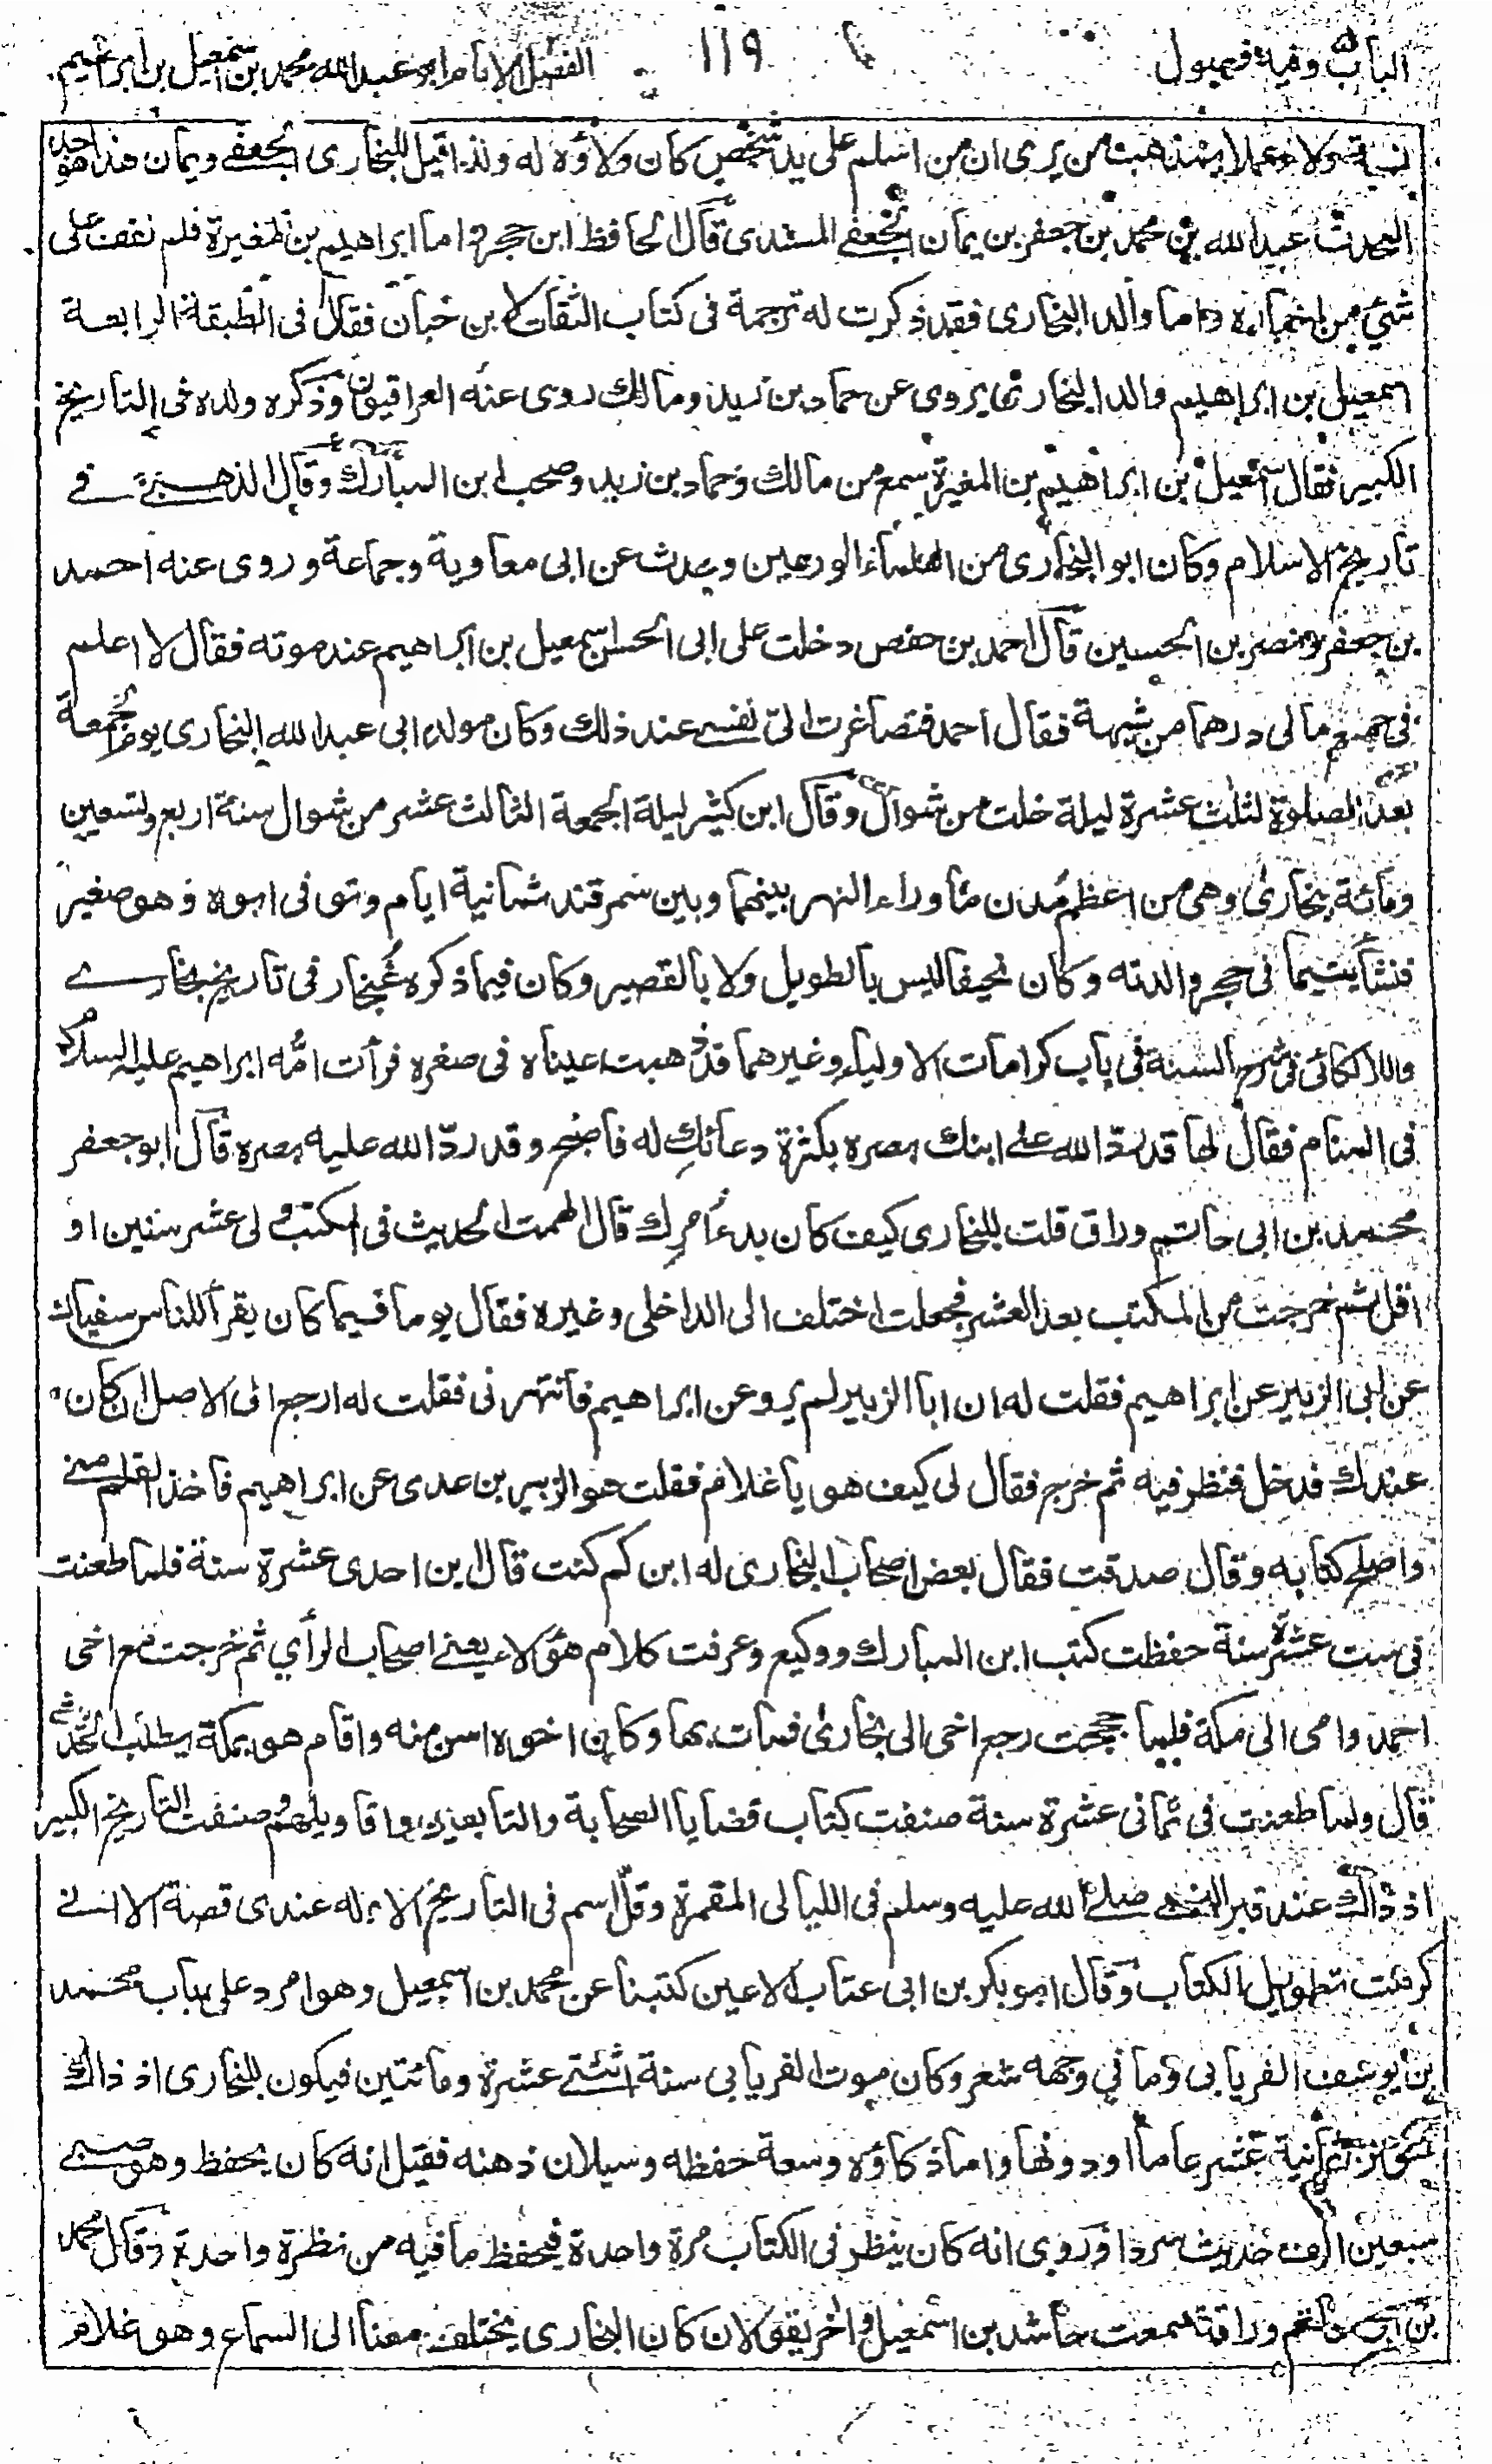 الباب وفیه فصول ١١٩ الفصل الامام ابو عبد الله محمد بن اسمعیل بن ابراهیم
نسبة ولاء وعملا بمذهب من یری ان من اسلم علی ید شخص کان ولاؤه له ولذا قیل للبخاری الجعفی ویمان هذا هو جد
المحدث عبد الله بن محمد بن جعفر بن یمان الجعفی المسندی قال الحافظ ابن حجر واما ابراهیم بن المغیرة فلم نقف علی
شیٔ من اخباره واما والد البخاری فقد ذکرت له ترجمة فی کتاب الثقات لابن حبان فقال فی الطبقة الرابعة
اسمعیل بن ابراهیم والد البخاری یروی عن حماد بن زید ومالك روی عنه العراقیون وذکره ولده فی التاریخ
الکبیر فقال اسمعیل بن ابراهیم بن المغیرة سمع من مالك وحماد بن زید وصحب ابن المبارك وقال الذهبی فی
تاریخ الاسلام وکان ابو البخاری من العلماء الورعین وحدث عن ابی معاویة وجماعة وروی عنه احمد
بن جعفر ونصر بن الحسین قال احمد بن حفص دخلت علی ابی الحسن اسمعیل بن ابراهیم عند موته فقال لا اعلم
فی جمیع مالی درهما من شبهة فقال احمد فتصاغرت الیّ نفسی عند ذلك وکان مولد ابی عبد الله البخاری یوم الجمعة
بعد الصلوة لثلث عشرة لیلة خلت من شوال وقال ابن کثیر لیلة الجمعة الثالث عشر من شوال سنة اربع وتسعین
ومائة ببخاری وهی من اعظم مدن ما وراء النهر بینها وبین سمرقند ثمانیة ایام وتوفی ابوه وهو صغیر
فنشأ یتیما فی حجر والدته وکان نحیفا لیس بالطویل ولا بالقصیر وکان فیما ذکره غُنجار فی تاریخ بخاری
واللالکائی فی شرح السنة فی باب کرامات الاولیاء وغیرهما قد ذهبت عیناه فی صغره فرأت امّه ابراهیم علیه السلام
فی المنام فقال لها قد ردّ الله علی ابنك بصره بکثرة دعائكِ له فاصبح وقد ردّ الله علیه بصره قال ابو جعفر
محمد بن ابی حاتم وراق قلت للبخاری کیف کان بدء امرك قال الهمت الحدیث فی المکتب ولی عشر سنین او
اقل ثم خرجت من المکتب بعد العشر فجعلت اختلف الی الداخلی وغیره فقال یوما فیما کان یقرأ للناس سفیان
عن ابی الزبیر عن ابراهیم فقلت له ان ابا الزبیر لم یرو عن ابراهیم فانتهرنی فقلت له ارجع الی الاصل ان کان
عندك فدخل فنظر فیه ثم خرج فقال لی کیف هو یا غلام فقلت هو الزبیر بن عدی عن ابراهیم فاخذ القلم منی
واصلح کتابه وقال صدقت فقال بعض اصحاب البخاری له ابن کم کنت قال ابن احدی عشرة سنة فلما طعنت
فی ست عشرة سنة حفظت کتب ابن المبارك ووکیع وعرفت کلام هؤلاء یعنی اصحاب الرأی ثم خرجت مع اخی
احمد وامی الی مکة فلما حججت رجع اخی الی بخاری فمات بها وکان اخوه اسن منه واقام هو بمکة یطلب الحدیث
قال ولما طعنت فی ثمانی عشرة سنة صنفت کتاب قضایا الصحابة والتابعین واقاویلهم وصنفت التاریخ الکبیر
اذ ذاك عند قبر النبی صلی الله علیه وسلم فی اللیالی المقمرة وقلّ اسم فی التاریخ الا وله عندی قصة الا انی
کرهت تطویل الکتاب وقال ابو بکر بن ابی عتاب الاعین کتبنا عن محمد بن اسمعیل وهو امرد علی باب محمد
بن یوسف الفریابی وما فی وجهه شعر وکان موت الفریابی سنة اثنتی عشرة ومائتین فیکون للبخاری اذ ذاك
نحو من ثمانیة عشر عاما او دونها واما ذکاؤه وسعة حفظه وسیلان ذهنه فقیل انه کان یحفظ وهو صبی
سبعین الف حدیث سردا وروی انه کان ینظر فی الکتاب مرة واحدة فیحفظ ما فیه من نظرة واحدة وقال محمد
بن ابی حاتم وراقه سمعت حاشد بن اسمعیل وآخر یقولان کان البخاری یختلف معنا الی السماع وهو غلام